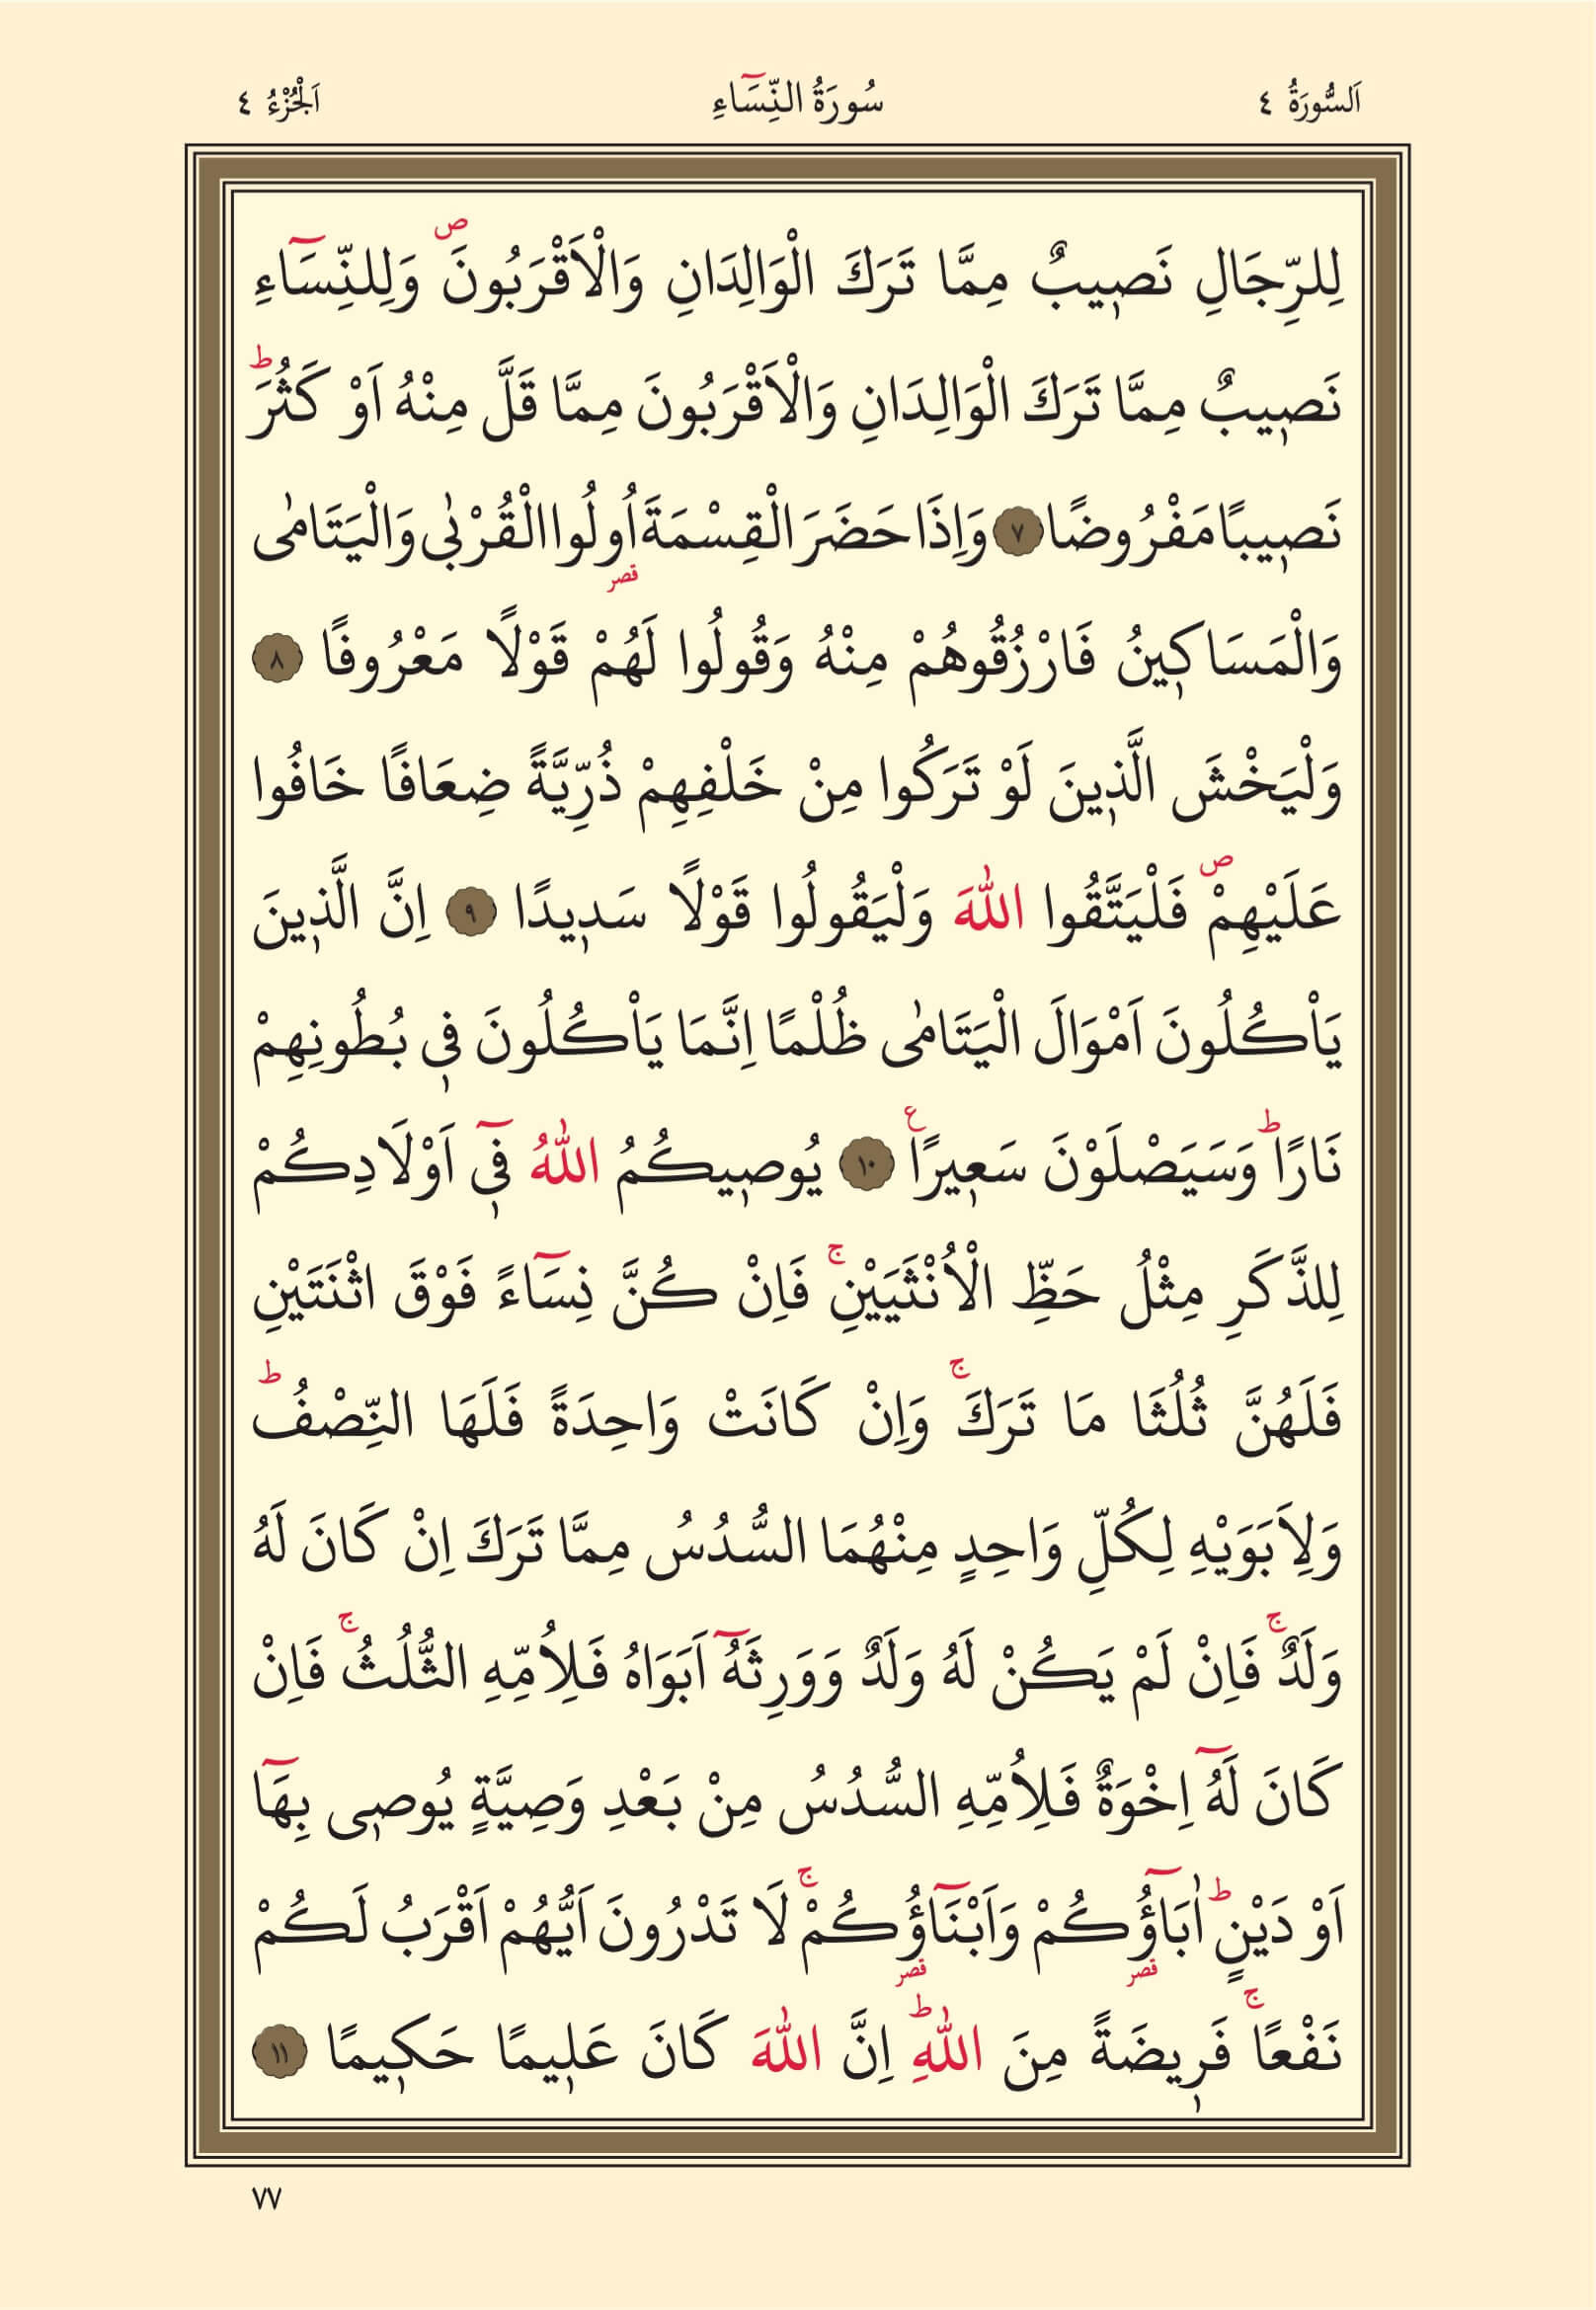 اَلسُّورَةُ ٤ سُورَةُ النِّسَٓاءِ اَلْجُزْءُ ٤
لِلرِّجَالِ نَصٖيبٌ مِمَّا تَرَكَ الْوَالِدَانِ وَالْاَقْرَبُونَۖ وَلِلنِّسَٓاءِ
نَصٖيبٌ مِمَّا تَرَكَ الْوَالِدَانِ وَالْاَقْرَبُونَ مِمَّا قَلَّ مِنْهُ اَوْ كَثُرَؕ
نَصٖيبًا مَفْرُوضًا ﴿٧﴾ وَاِذَا حَضَرَ الْقِسْمَةَ اُولُوا الْقُرْبٰى وَالْيَتَامٰى
قصر
وَالْمَسَاكٖينُ فَارْزُقُوهُمْ مِنْهُ وَقُولُوا لَهُمْ قَوْلًا مَعْرُوفًا ﴿٨﴾
وَلْيَخْشَ الَّذٖينَ لَوْ تَرَكُوا مِنْ خَلْفِهِمْ ذُرِّيَّةً ضِعَافًا خَافُوا
عَلَيْهِمْۖ فَلْيَتَّقُوا اللّٰهَ وَلْيَقُولُوا قَوْلًا سَدٖيدًا ﴿٩﴾ اِنَّ الَّذٖينَ
يَاْكُلُونَ اَمْوَالَ الْيَتَامٰى ظُلْمًا اِنَّمَا يَاْكُلُونَ فٖى بُطُونِهِمْ
نَارًاؕ وَسَيَصْلَوْنَ سَعٖيرًاࣖ ﴿١٠﴾ يُوصٖيكُمُ اللّٰهُ فٖٓى اَوْلَادِكُمْ
لِلذَّكَرِ مِثْلُ حَظِّ الْاُنْثَيَيْنِۚ فَاِنْ كُنَّ نِسَٓاءً فَوْقَ اثْنَتَيْنِ
فَلَهُنَّ ثُلُثَا مَا تَرَكَۚ وَاِنْ كَانَتْ وَاحِدَةً فَلَهَا النِّصْفُؕ
وَلِاَبَوَيْهِ لِكُلِّ وَاحِدٍ مِنْهُمَا السُّدُسُ مِمَّا تَرَكَ اِنْ كَانَ لَهُ
وَلَدٌۚ فَاِنْ لَمْ يَكُنْ لَهُ وَلَدٌ وَوَرِثَهُٓ اَبَوَاهُ فَلِاُمِّهِ الثُّلُثُۚ فَاِنْ
كَانَ لَهُٓ اِخْوَةٌ فَلِاُمِّهِ السُّدُسُ مِنْ بَعْدِ وَصِيَّةٍ يُوصٖى بِهَٓا
اَوْ دَيْنٍؕ اٰبَٓاؤُكُمْ وَاَبْنَٓاؤُكُمْۚ لَا تَدْرُونَ اَيُّهُمْ اَقْرَبُ لَكُمْ
قصر قصر
نَفْعًاۚ فَرٖيضَةً مِنَ اللّٰهِؕ اِنَّ اللّٰهَ كَانَ عَلٖيمًا حَكٖيمًا ﴿١١﴾
٧٧